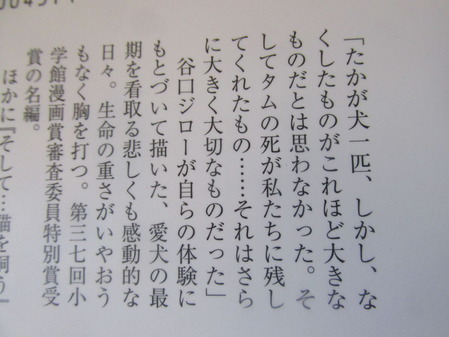 「たかが犬一匹、しかし、な
くしたものがこれほど大きな
ものだとは思わなかった。そ
してタムの死が私たちに残し
てくれたもの……それはさら
に大きく大切なものだった」
谷口ジローが自らの体験に
もとづいて描いた、愛犬の最
期を看取る悲しくも感動的な
日々。生命の重さがいやおう
もなく胸を打つ。第三七回小
学館漫画賞審査委員特別賞受
賞の名編。
ほかに『そして…猫を飼う』